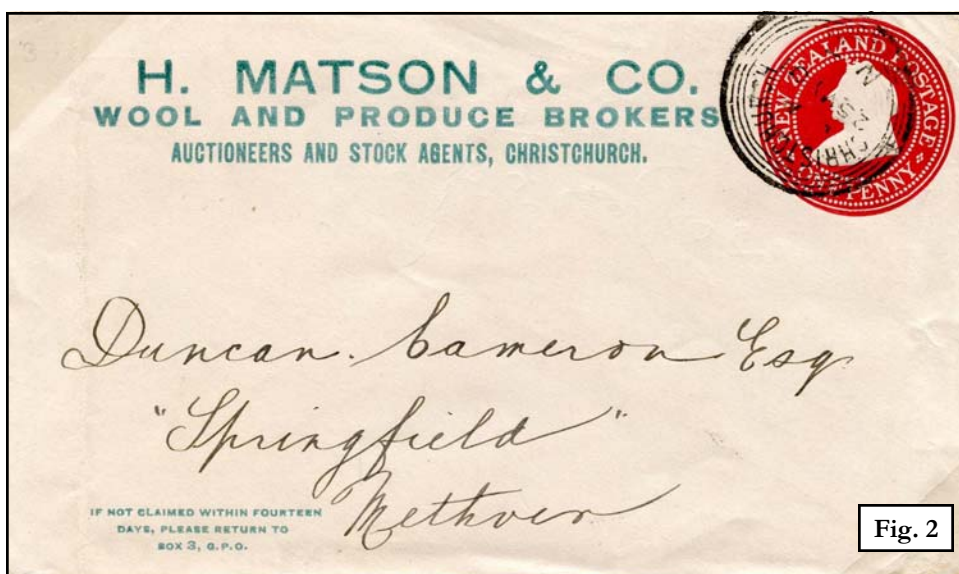 H. MATSON & CO.
WOOL AND PRODUCE BROKERS
AUCTIONEERS AND STOCK AGENTS, CHRISTCHURCH.
NEW ZEALAND POSTAGE
ONE PENNY
CHRISTCHURCH
Duncan. Cameron Esq
"Springfield"
Methven
IF NOT CLAIMED WITHIN FOURTEEN
DAYS, PLEASE RETURN TO
BOX 3, G.P.O.
Fig. 2